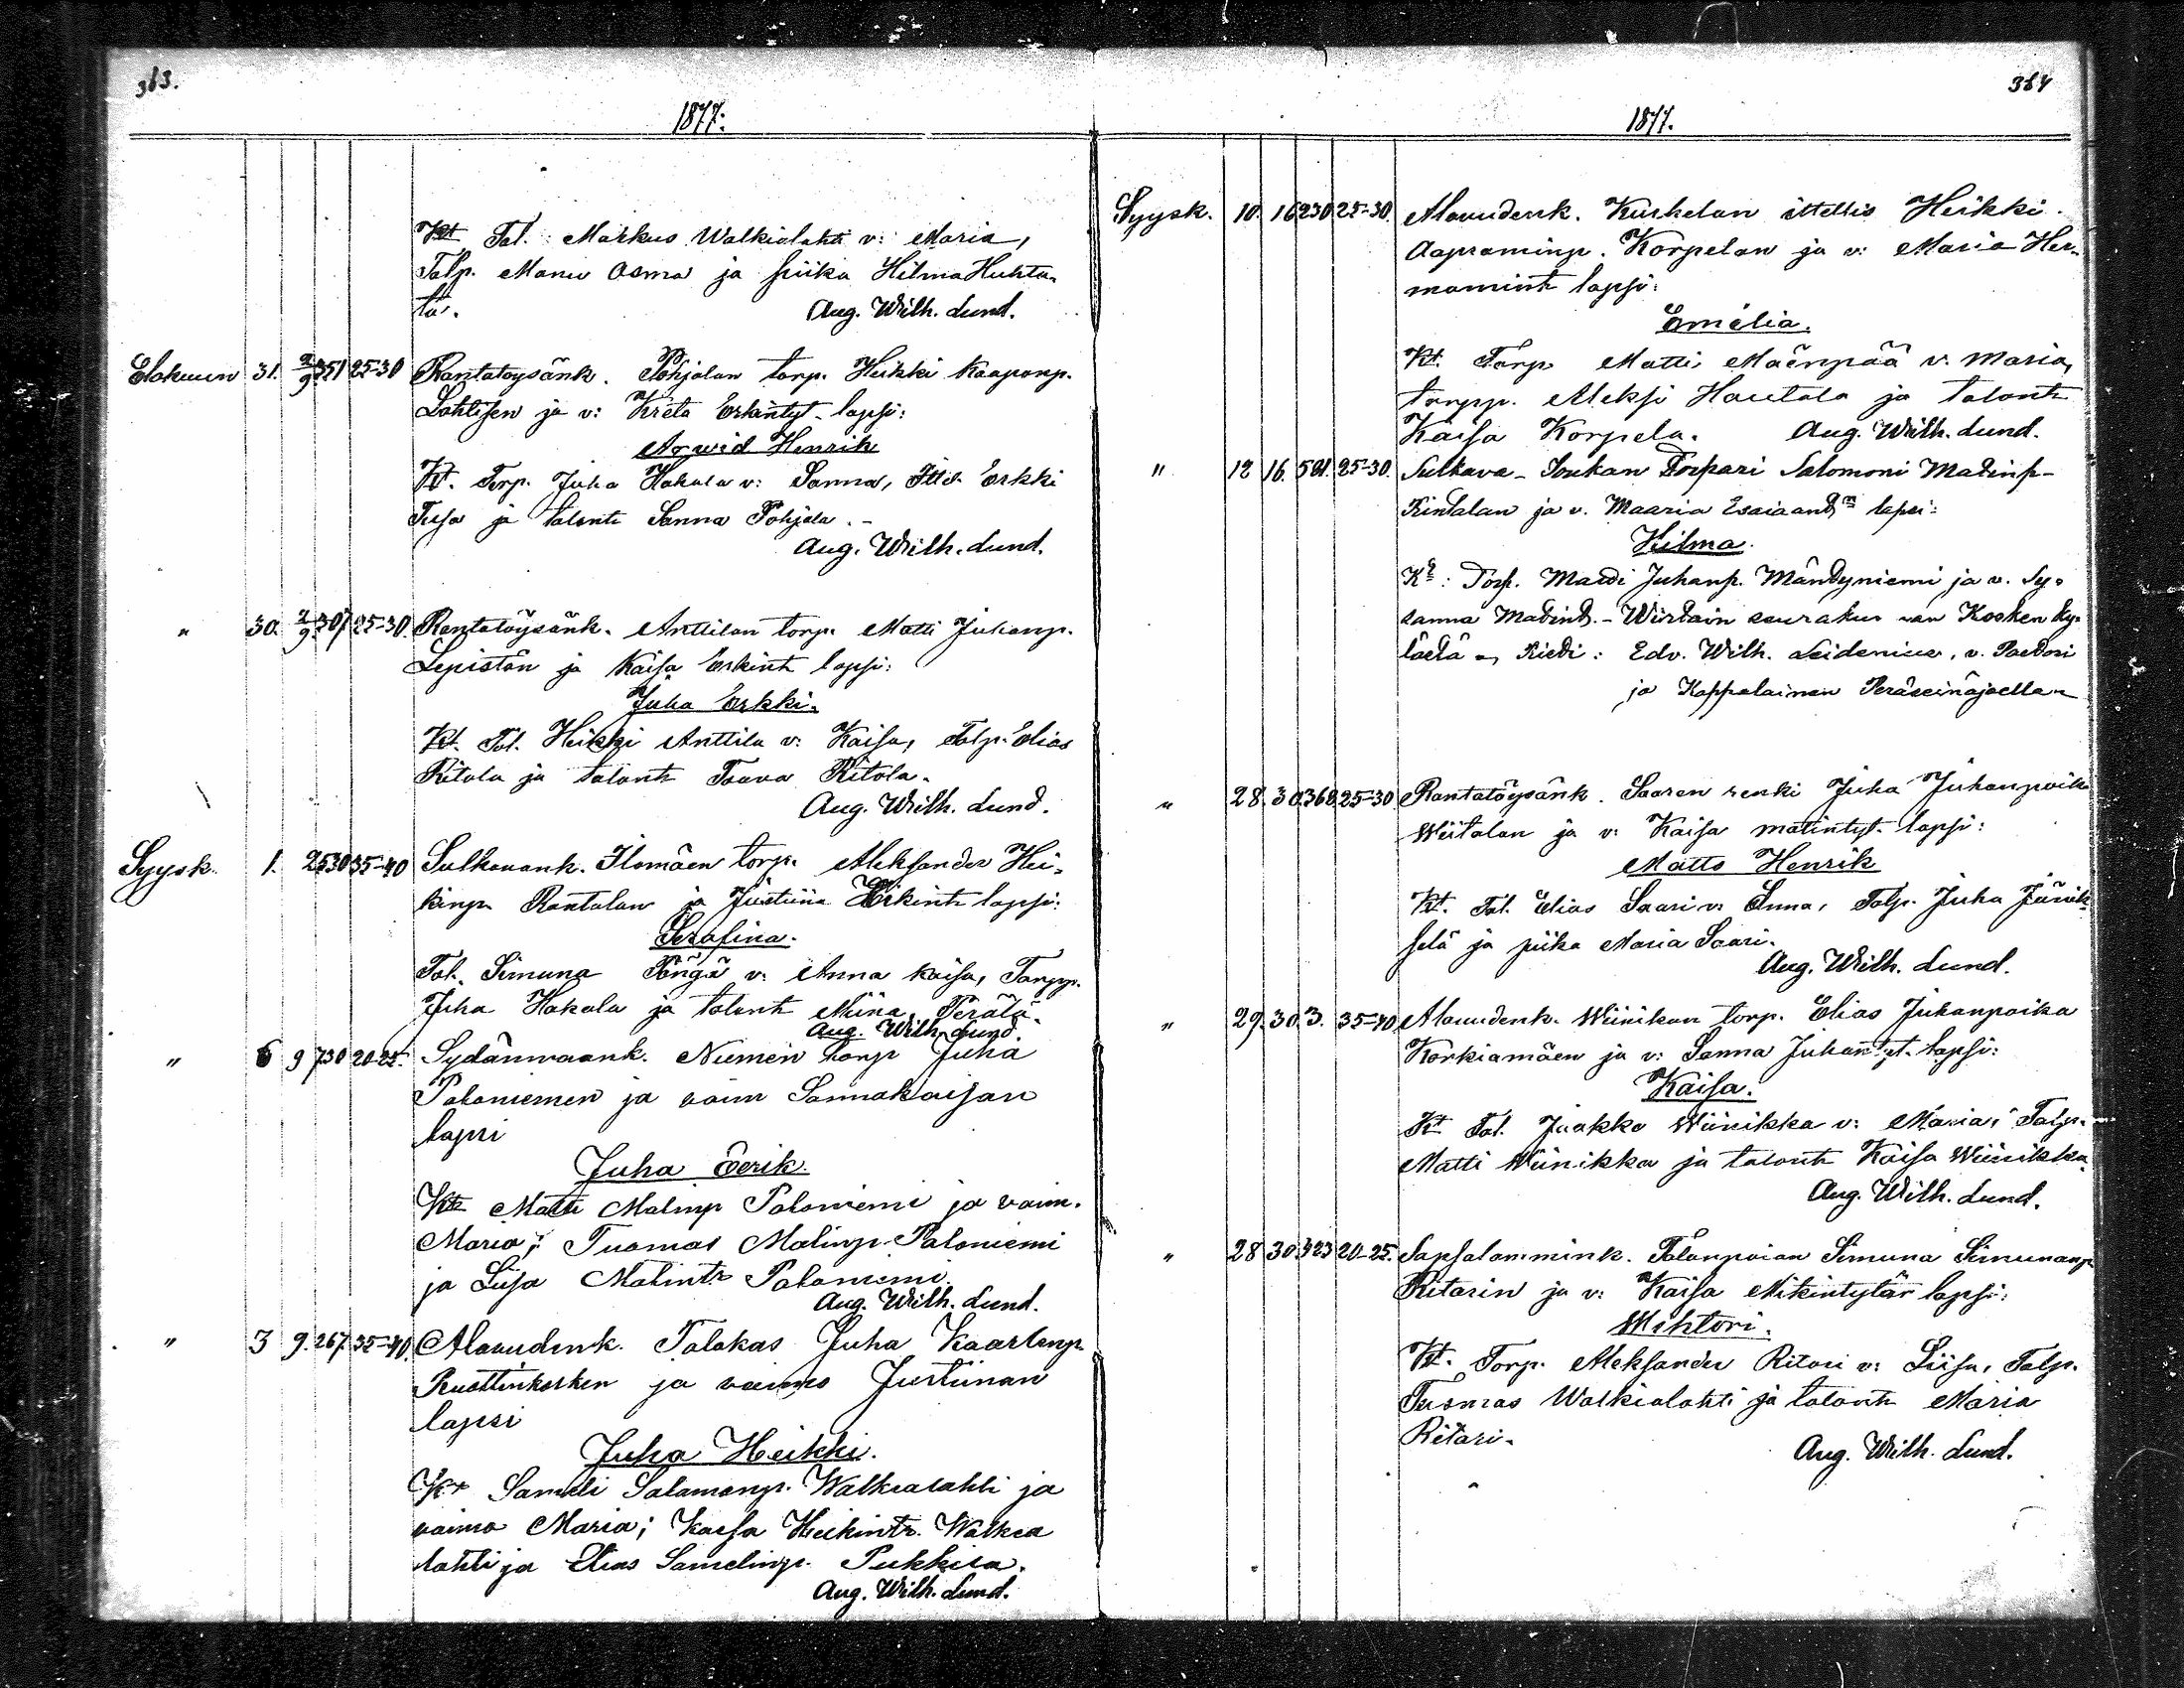 363.
1877.
Kt Tal. Markus Walkialahti v: Maria,
Talp. Manu Osma ja piika Hilma Huhta-
la.
Aug. Wilh. Lund.
Elokuun 31. 2/9 351 25-30 Rantatöysänk. Pohjolan torp. Heikki Kaaponp.
Lahtisen ja v: Kreta Erkintyt. lapsi:
Arwid Henrik
Kt. Torp. Juha Hakala v: Sanna, Itte. Erkki
Tusa ja talontr Sanna Pohjola.-
Aug. Wilh. Lund.
" 30. 2/9 307 25-30. Rantatöysänk. Anttilan torp. Matti Juhanp.
Lepistön ja Kaisa Erkintr lapsi:
Juha Erkki.
Kt. Tal. Heikki Anttila v: Kaisa, Talp. Elias
Ritola ja talontr Ritola.
Aug. Wilh. Lund.
Syysk. 1. 2 530 35-40 Sulkavank. Ilomäen torp. Aleksander Hei-
kinp. Rantalan ja Justiina Erkintr lapsi:
Serafina.
Tal. Simuna Pöngä v: Anna Kaisa, Torpp.
Juha Hakala ja talontr Miina Perälä.
Aug. Wilh. Lund.
" 6 9 730 20-25. Sydänmaank. Niemen torp Juha
Paloniemen ja vaim Sannakaisan
lapsi
Juha Eerik.
Kt Matti Matinp Paloniemi ja vaim.
Maria; Tuomas Matinp. Paloniemi
ja Liisa Matintr Paloniemi.
Aug. Wilh. Lund.
" 3 9. 267 35-40. Alavudenk. Talokas Juha Kaarlenp.
Ruottinkosken ja vaimo Justiinan
lapsi
Juha Heikki.
Kt Sameli Salamonp. Walkialahti ja
vaimo Maria; Kaisa Heikintr. Walkea
lahti ja Elias Samelinp. Pukkila.
Aug. Wilh. Lund.
364
1877.
Syysk. 10. 16 230 25-30. Alavudenk. Kuskelan ittellis Heikki
Aapraminp. Korpelan ja v: Maria Her-
mannintr lapsi:
Emelia.
Kt. Torp. Matti Mäenpää v. Maria,
torpp. Aleksi Hautala ja talontr
Kaisa Korpela. Aug. Wilh. Lund.
" 12 16. 581. 25-30. Sulkava- Soukan Torpari Salomoni Matinp-
Kintalan ja v. Maaria lapsi:
Hilma.
Kt: Torp. Matti Juhanp. Mäntyniemi ja v. Sy-
sanna Matintr.- Wirtain seurakunnan Kosken ky-
lästä Kiedi: Edv. Wilh. Leidenius, v. Pastori
ja Kappalainen Peräseinäjoella
" 28. 30. 368 25-30 Rantatöysänk. Saaren renki Juha Juhanpoika
Wiitalan ja v: Kaisa matintyt. lapsi:
Matts Henrik
Kt. Tal. Elias Saari v: Anna, Talp. Juha Jänik-
selä ja piika Maria Saari.
Aug. Wilh. Lund.
" 29. 30. 3. 35-40 Alavudenk. Wiinikan torp. Elias Juhanpoika
Korkiamäen ja v: Sanna Juhantyt. lapsi:
Kaisa.
Kt Tal. Jaakko Wiinikka v: Maria, Talp.
Matti Wiinikka ja talontr Kaisa Wiinikka
Aug. Wilh. Lund.
" 28 30. 323 20-25. Sapsalammink. Talonpoian Simuna Simunanp
Ritarin ja v: Kaisa Mikintytär lapsi:
Wihtori.
Kt. Torp. Aleksander Ritari v: Liisa, Talp.
Tuomas Walkialahti ja talontr Maria
Ritari.
Aug. Wilh. Lund.